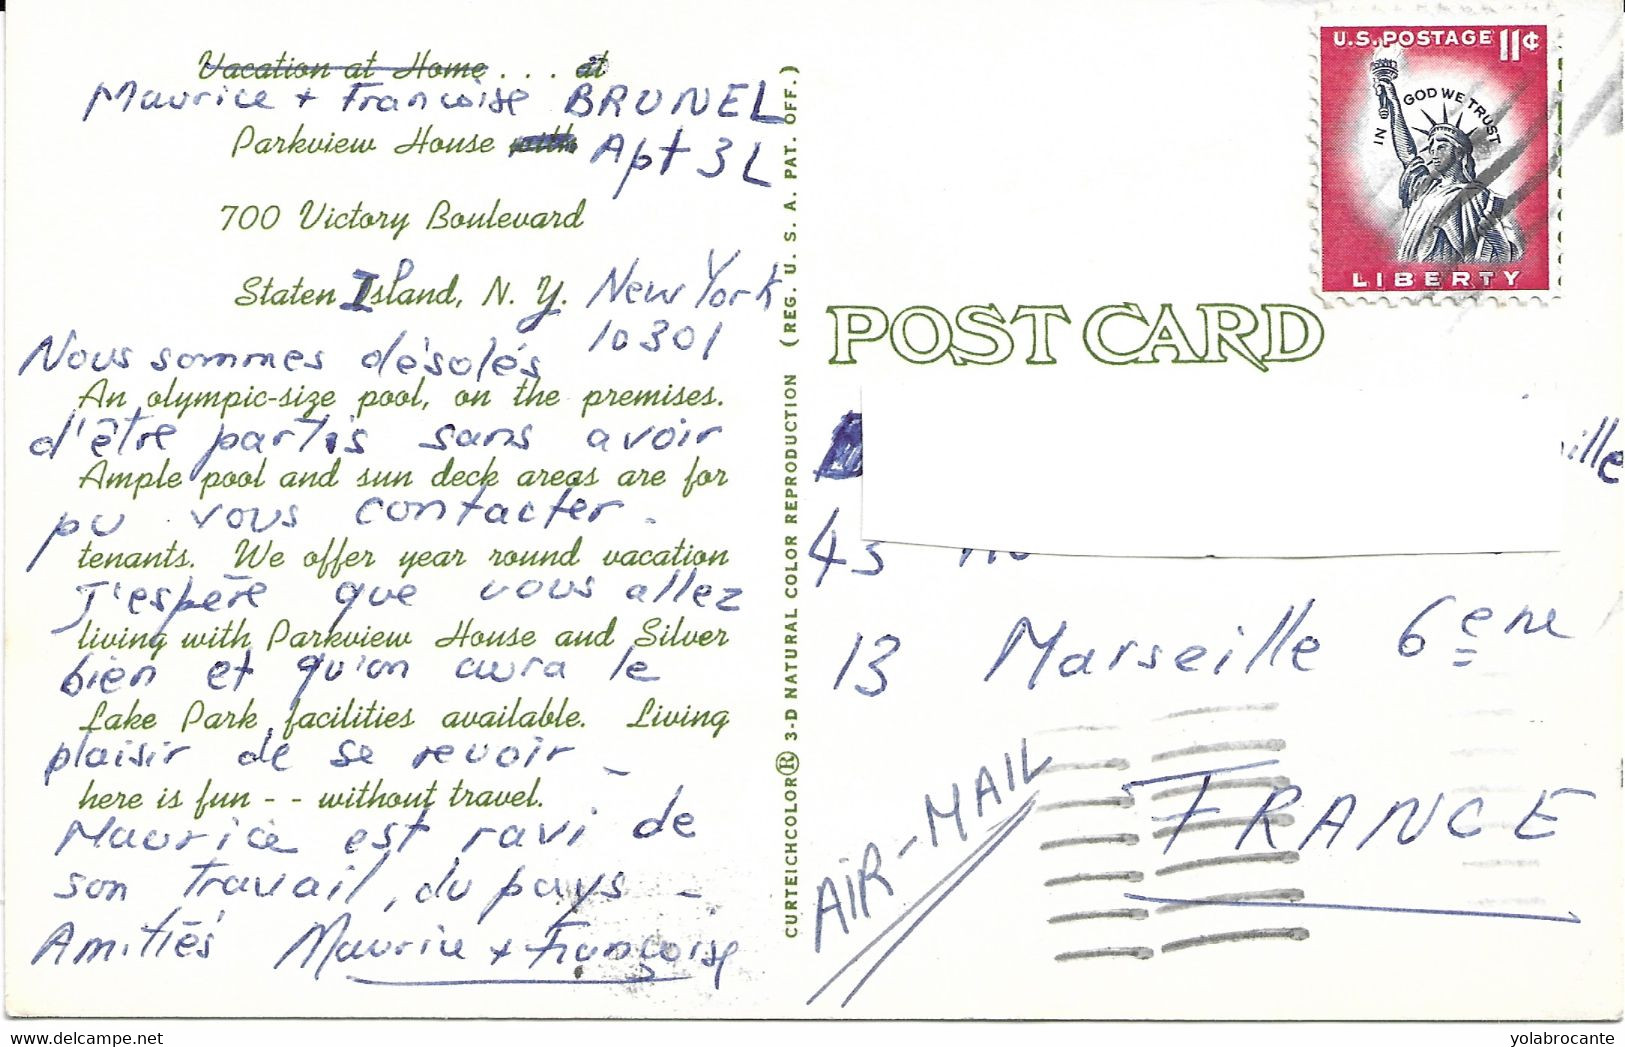 Vacation at Home . . . at
Maurice + Françoise BRUNEL
Parkview House with Apt 3L
700 Victory Boulevard
Staten Island, N. Y. New York
10301
Nous sommes désolés
An olympic-size pool, on the premises.
d'être partis sans avoir
Ample pool and sun deck areas are for
pu vous contacter.
tenants. We offer year round vacation
J'espère que vous allez
living with Parkview House and Silver
bien et qu'on aura le
Lake Park facilities available. Living
plaisir de se revoir -
here is fun - - without travel.
Maurice est ravi de
son travail, du pays -
Amitiés Maurice + Françoise
CURTEICHCOLOR® 3-D NATURAL COLOR REPRODUCTION (REG. U. S. A. PAT. OFF.)
U.S. POSTAGE 11¢
IN GOD WE TRUST
LIBERTY
POST CARD
ille
13 Marseille 6eme
AIR-MAIL
FRANCE
yolabrocante